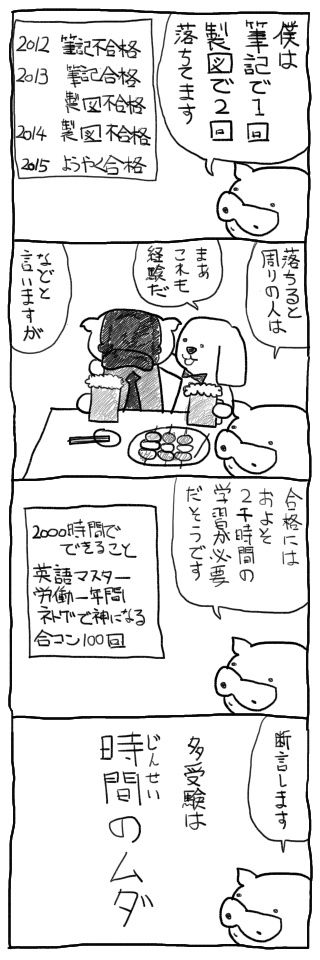 僕は
筆記で1回
製図で2回
落ちてます
2012 筆記不合格
2013 筆記合格
製図不合格
2014 製図不合格
2015 ようやく合格
落ちると
周りの人は
まぁ
これも
経験だ
などと
言いますが
合格には
およそ
2千時間の
学習が必要
だそうです
2000時間で
できること
英語マスター
労働一年間
ネトゲで神になる
合コン100回
断言します
多受験は
じんせい
時間のムダ